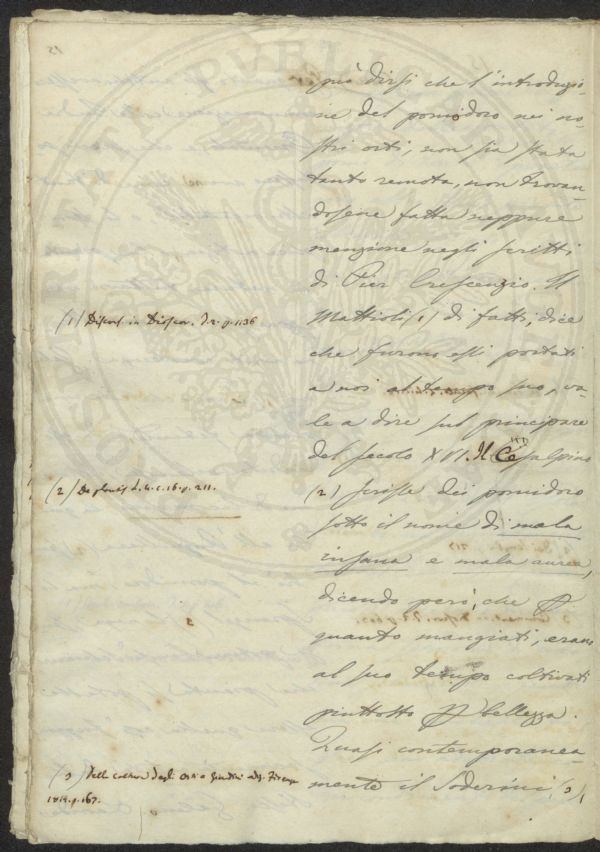 può dirsi che l'introduzio-
ne del pomidoro nei no-
stri orti, non sia stata
tanto remota, non trovan-
dosene fatta neppure
menzione negli scritti
di Pier Crescenzio. Il
Mattioli (1) di fatti, dice
che furono essi portati
a noi al tempo suo, va-
le a dire sul principare
del secolo XVI. Il Cesalpino
(2) scrisse dei pomidoro
sotto il nome di mala
insana e mala aurea,
dicendo però, che p
quanto mangiati, erano
al suo tempo coltivati
piuttosto p bellezza.
Quasi contemporanea-
mente il Soderini (3),
(1) Discors. in Dioscor. p. 1136
(2) De plantis l. c. 16. p. 211.
(3) Della coltura degli Orti e Giardini Firenze
1814. p. 167.